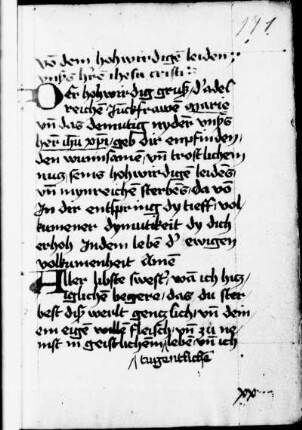 171
vō dem hohwirdigē leiden
vnsʒs hr̄e ihesu cristi
Der hohwirdig gruß d' adel
reichen Juckfrawē marie
vn̄ das demutig nyder vnsʒs
herr̄ ihū xp̄i geb dir empfinden
den wunsame vn̄ trostlichem
nucʒ seins hohwirdigē leides
vn̄ mynreichē sterbēs da vō
In dir entspring dy tieff vol
kumener dymutikeit dy dich
erhoh Indem lebē d' ewigen
volkumenheit Amē
Aller libste swest' wā ich hicʒ
iglichē begere das du ster
best diß werlt gencʒlich vn̄ dem
em eigē wille fleisch vn̄ zu ne
mst in geistlichem leben vn̄ ich
tugentlichē
xx